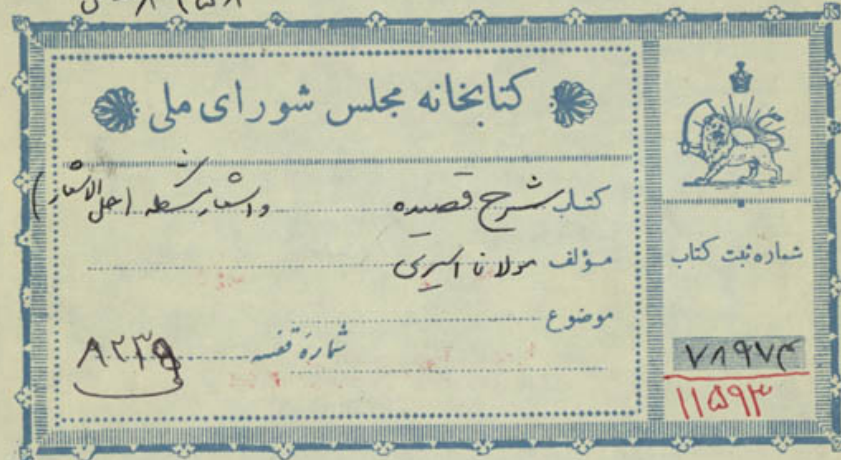 کتابخانه مجلس شورای ملی
کتاب شرح قصیده و اشعار مشکله (حل الاشعار)
مؤلف مولانا اسیری
موضوع
شمارهٔ قفسه ۸۲۳۵
شماره ثبت کتاب
۷۸۹۷۴
۱۱۵۹۳